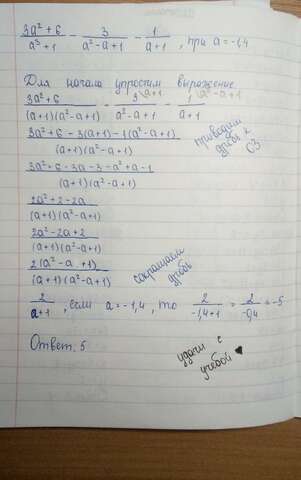 3a² + 6 / a³ + 1 - 3 / a² - a + 1 - 1 / a + 1 , при a = -1,4
Для начала упростим выражение
3a² + 6 / (a+1)(a² - a + 1) - 3 \a+1 / a² - a + 1 - 1 \a² - a + 1 / a + 1
3a² + 6 - 3(a+1) - 1(a² - a + 1) / (a+1)(a² - a + 1)
приводим дробь к ОЗ
3a² + 6 - 3a - 3 - a² + a - 1 / (a+1)(a² - a + 1)
2a² + 2 - 2a / (a+1)(a² - a + 1)
2a² - 2a + 2 / (a+1)(a² - a + 1)
2(a² - a + 1) / (a+1)(a² - a + 1)
сокращаем дробь
2 / a+1 , если a = -1,4 , то 2 / -1,4+1 = 2 / -0,4 = -5
Ответ: 5
удачи с учёбой ♥